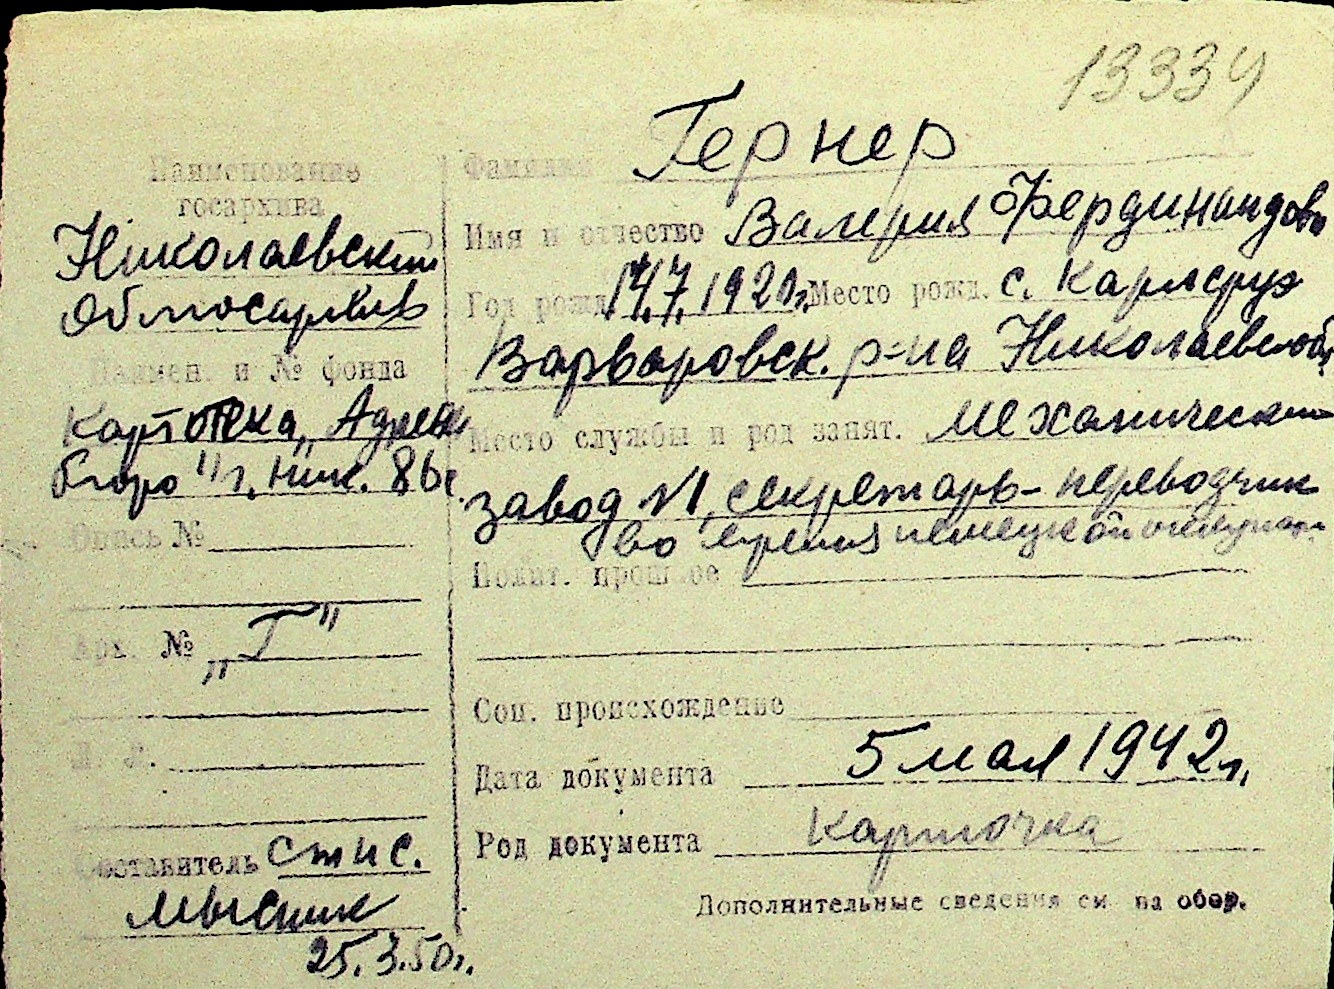 13334
Наименование
госархива
Николаевский
Облгосархив
Наимен. и № фонда
Картотека „Адресн
бюро" г. Ник.
Опись №
Арх. № „Г"
Составитель
Мысник
25.3.50г.
Фамилия Гернер
Имя и отчество Валерия Фердинандовн
Год рожд. 14.7.1920г. Место рожд. с. Карлсруэ
Варваровск. р-на Николаевской
Место службы и род занят. механический
завод №1, секретарь-переводчик
во время немецкой оккупации
Полит. прошлое
Соц. происхождение
Дата документа 5 мая 1942г.
Род документа карточка
Дополнительные сведения см. на обор.